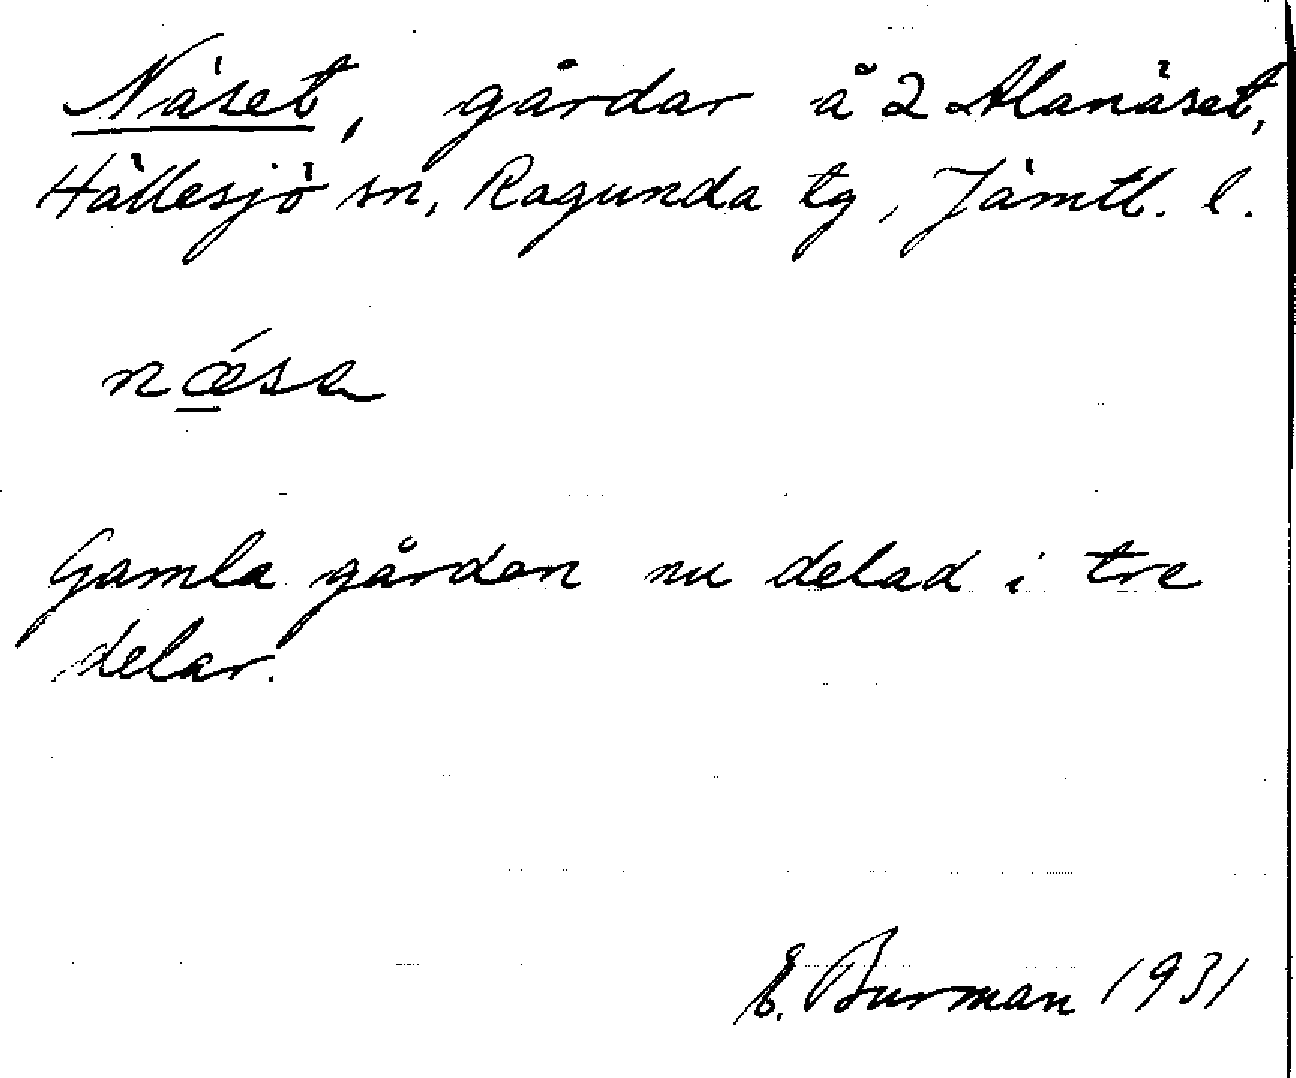 Näset, gårdar å 2 Alanäset,
Hällesjö sn, Ragunda tg, Jämtl. l.
nǽ̲sa
Gamla gården nu delad i tre
delar.
E. Burman 1931